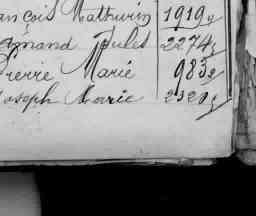 ançois Mathurin 1919
Armand Jules 2274
Pierre Marie 983
Joseph Marie 2320